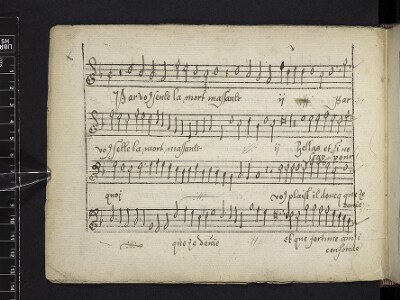 Par voz seulle la mort massault ij Par
voz seulle la mort massault ij Hellas et si ne
scay pour
quoj voz plaist il doncq que Je
devie
que Je devie Et que fortune ainsi
confonde